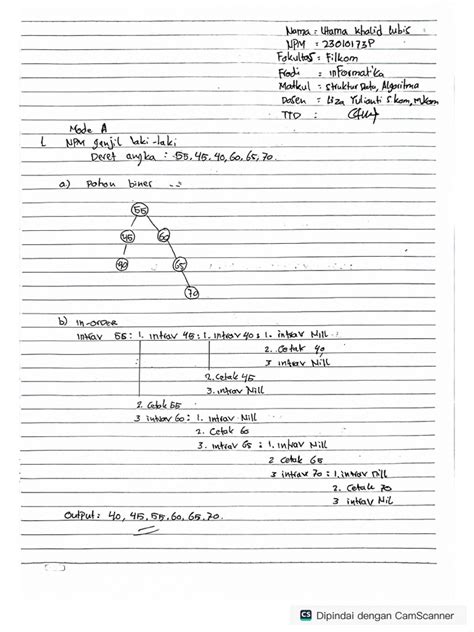 Nama : Utama Khalid Lubis
NPM : 23010173P
Fakultas : Filkom
Prodi : informatika
Matkul : Struktur Data, Algoritma
Dosen : Liza Yulianti S.kom, M.kom
TTD :
Mode A
1. NPM ganjil laki-laki
Deret angka : 55, 45, 40, 60, 65, 70.
a.) Pohon biner
55
45 60
40 65
70
b) in-order
intrav 55 : 1. intrav 45 : 1. intrav 40 : 1. intrav Nill
2. Cetak 40
3 intrav Nill
2. Cetak 45
3. intrav Nill
2. Cetak 55
3 intrav 60 : 1. intrav Nill
2. Cetak 60
3. intrav 65 : 1. intrav Nill
2 cetak 65
3 intrav 70 : 1. intrav nill
2. Cetak 70
3 intrav Nil
Output : 40, 45, 55, 60, 65, 70.
CS Dipindai dengan CamScanner